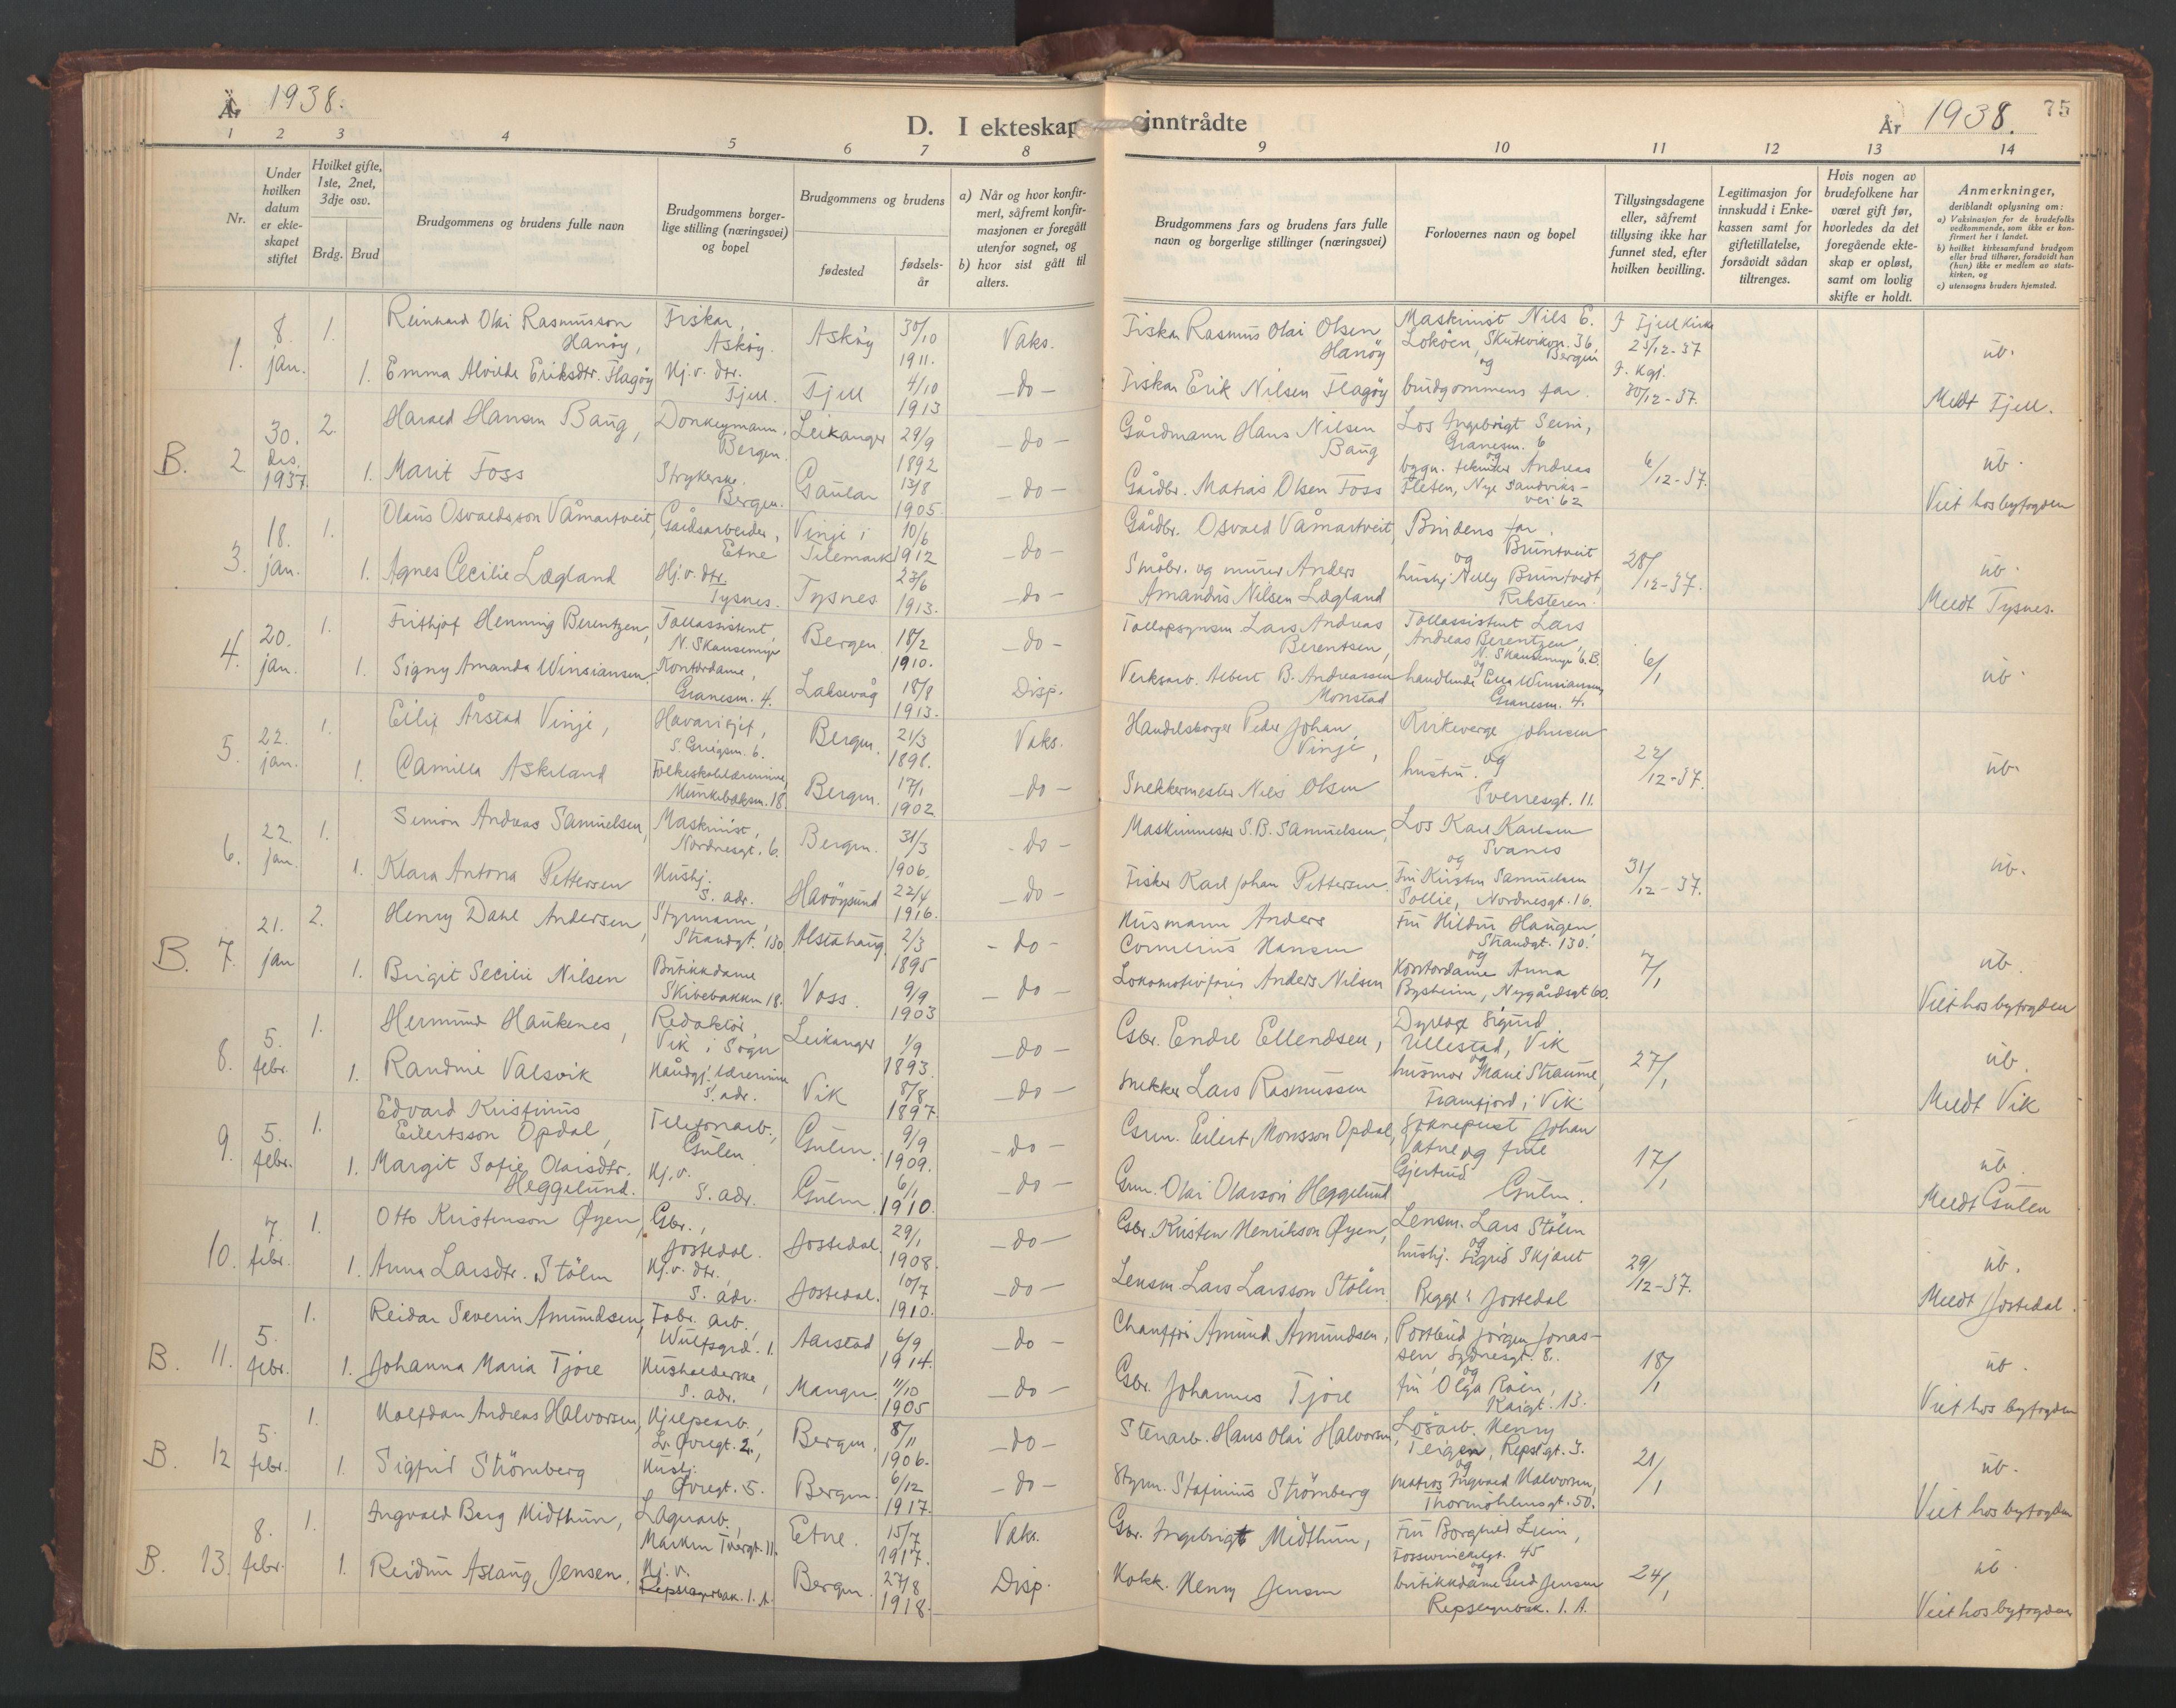 År 1938.
D. I ekteskap
inntrådte
År 1938.
75
1 2 3 4 5 6 7 8
9 10 11 12 13 14
Nr.
Under hvilken datum er ekteskapet stiftet
Hvilket gifte, 1ste, 2net, 3dje osv.
Brdg. Brud
Brudgommens og brudens fulle navn
Brudgommens borgerlige stilling (næringsvei) og bopel
Brudgommens og brudens
fødested
fødselsår
a) Når og hvor konfirmert, såfremt konfirmasjonen er foregått utenfor sognet, og
b) hvor sist gått til alters.
Brudgommens fars og brudens fars fulle navn og borgerlige stillinger (næringsvei)
Forlovernes navn og bopel
Tillysingsdagene eller, såfremt tillysing ikke har funnet sted, efter hvilken bevilling.
Legitimasjon for innskudd i Enkekassen samt for giftetillatelse, forsåvidt sådan tiltrenges.
Hvis nogen av brudefolkene har været gift før, hvorledes da det foregående ekteskap er opløst, samt om lovlig skifte er holdt.
Anmerkninger, deriblandt oplysning om:
a) Vaksinasjon for de brudefolks vedkommende, som ikke er konfirmert her i landet.
b) hvilket kirkesamfund brudgom eller brud tilhører, forsåvidt han (hun) ikke er medlem av statskirken, og
c) utensogns bruders hjemsted.
1. 8. jan. 1. Reinhard Olai Rasmusson Hanøy, Fiskar, Askøy. Askøy 30/10 1911. Vaks. Fiskar Rasmus Olai Olsen Hanøy Maskinist Nils E. Lokøen, Skutevikon. 36, Bergen I Fjell kirke 25/12-37 ub.
1. Emma Alvilde Eriksdtr. Flagøy Hj.v. dtr. Fjell. Fjell 4/10 1913 -do- Fiskar Erik Nilsen Flagøy og brudgommens far. 30/12-37. Meldt Fjell.
B. 2 30. des. 1937. 2. Harald Hansen Baug, Donkeymann, Bergen. Leikanger 29/9 1892 -do- Gårdmann Hans Nilsen Baug Los Ingebrigt Seim, Granesm. 6 6/12-37. ub.
1. Marit Foss Strykerske, Bergen. Gaular 13/8 1905. -do- Gårdbr. Matias Olsen Foss og bygn. tekniker Andreas Fleten, Nye Sandviksvei 62 Viet hos byfogden
3. 18. jan. 1. Olaus Osvaldsson Våmartveit, Gårdsarbeider, Etne Vinje i Telemark 10/6 1912 -do- Gårdbr. Osvald Våmartveit, Brudens far. 28/12-37. ub.
1. Agnes Cecilie Lægland Hj.v. dtr. Tysnes. Tysnes 23/6 1913. -do- Småbr. og murer Anders Amandus Nilsen Lægland og hushj. Nelly Bruntveit, Bruntveit Riksteren. Meldt Tysnes.
4. 20. jan. 1. Frithjof Henning Berentzen, Tollassistent, N. Skansemyr Bergen 18/2 1910. -do- Tollopsynsm Lars Andreas Berentsen, Tollassistent Lars Andreas Berentzen, N. Skansemyr 6. B. 6/1 ub.
1. Signy Amanda Winsiansen Kontordame, Granesm. 4. Laksevåg 18/8 1913. Disp. Verksarb. Albert B. Andreassen Monstad og handlende Ella Winsiansen Granesm. 4.
5. 22. jan. 1. Eilif Årstad Vinje, Havarisjef, S. Griegsm. 6. Bergen. 21/3 1898. Vaks. Handelsborger Peder Johan Vinje, Kirkeverge Johnsen 22/12-37. ub.
1. Camilla Askeland Folkeskolelærerinne, Munkebotsm. 18 Bergen. 17/1 1902. -do- Snekkermester Nils Olsen og hustru. Sverresgt. 11.
6. 22. jan. 1. Simon Andreas Samuelsen, Maskinist, Nordnesgt. 6. Bergen. 31/3 1906. -do- Maskinmester S. B. Samuelsen, Los Karl Karlsen Svanes 31/12-37. ub.
1. Klara Antona Pettersen Hushj. S. adr. Havøysund 22/4 1916. -do- Fisker Karl Johan Pettersen og Fru Kirsten Samuelsen Sollie, Nordnesgt. 16.
B. 7. 21. jan 2. Henry Dahl Andersen, Styrmann, Strandgt. 130 Alstahaug 2/3 1895 -do- Husmann Anders Cornelius Hansen Fru Hildur Haugen, Strandgt. 130. 7/1 ub.
1. Birgit Secilie Nilsen Butikkdame Skivebakken 18. Voss. 9/9 1903 -do- Lokomotivfører Anders Nilsen og Kontordame Anna Bysheim, Nygårdsgt 60. Viet hos byfogden
8. 5. febr. 1. Hermund Haukenes, Redaktør, Vik i Sogn Leikanger 1/9 1893. -do- Gbr. Endre Ellendsen, Dyrlege Sigurd Ullestad, Vik 27/1 ub.
1. Randmi Valsvik Håndgj. lærerinne S. adr. Vik 8/8 1897. -do- Snekker Lars Rasmussen og husmor Marie Straume, Framfjord i Vik Meldt Vik
9. 5. febr. 1. Edvard Kristinius Eilertsson Opdal, Telefonarb., Gulen Gulen. 9/9 1909. -do- Gbrm. Eilert Monsson Opdal, Sokneprest Johan Vatne og frue Gjertrud 17/1 ub.
1. Margit Sofie Olaisdtr. Heggelund. Hj.v. S. adr. Gulen 6/1 1910. -do- Grm. Olai Olarson Heggelund Gulen. Meldt Gulen
10. 7. febr. 1. Otto Kristenson Øyen, Gbr., Jostedal. Jostedal. 29/1 1908. -do- Gbr. Kristen Henrikson Øyen, Lensm. Lars Stölen 29/12-37. ub.
1. Anna Larsdtr. Stölen Hj.v. dtr., S. adr. Jostedal. 10/7 1910. -do- Lensm Lars Larsson Stölen og hushj. Sigrid Skjæret Jostedal Meldt Jostedal.
B. 11. 5. febr. 1. Reidar Severin Amundsen, Fabr. arb., Wulfsgrd. 1. Aarstad 6/9 1914. -do- Chauffør Amund Amundsen, Postbud Jørgen Jonassen, Sydnesgt. 8. 18/1 ub.
1. Johanna Maria Tjore Husholderske, S. adr. Manger. 11/10 1905 -do- Gbr. Johannes Tjore og fru Olga Roen, Kaigt. 13. Viet hos byfogden
B. 12 5. febr. 1. Halfdan Andreas Halvorsen, Hjelpearb., L. Øvregt. 2., Bergen. 8/11 1906. -do- Stenarb. Hans Olai Halvorsen, Løsarb. Henry Teigen, Repslgt. 3. 21/1 ub.
1. Sigfrid Strömberg Hushj. Øvregt. 5. Bergen. 6/12 1917. -do- Styrm. Stefinius Strömberg og matros Ingvald Halvorsen, Thormöhlensgt. 50. Viet hos byfogden
B. 13. 8. febr. 1. Ingvald Berg Midthun, Lagerarb., Marken Tvergt. 11. Etne. 15/7 1917. Vaks. Gbr. Ingebrigt Midthun, Fru Borghild Lien, Fosswinckelgt. 45 24/1 ub.
1. Reidun Aslaug Jensen. Hj.v. Repslagerbak. 1. A. Bergen. 27/8 1918. Disp. Kokk. Henry Jensen og butikkdame Gerd Jensen Repslagerbak. 1. A. Viet hos byfogden